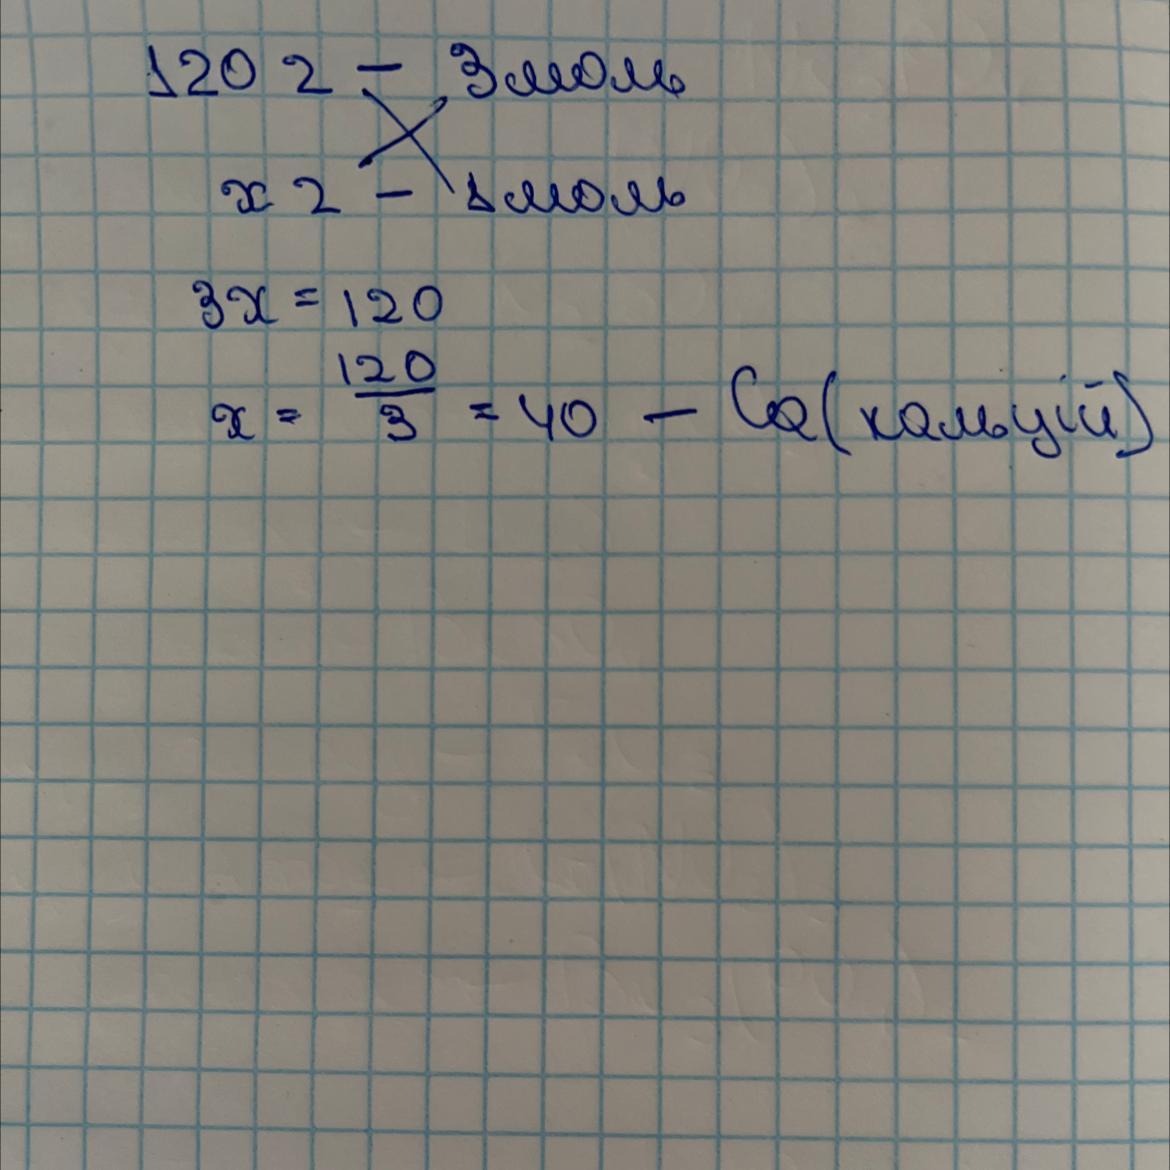 120 г - 3 моль
x г - 1 моль
3x = 120
x = 120/3 = 40 - Ca (кальцій)